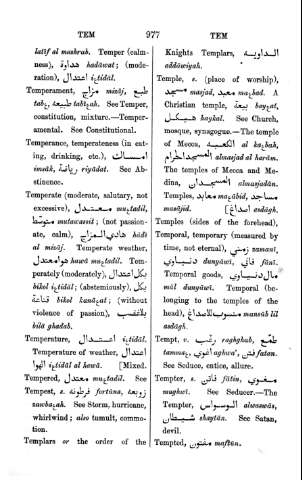 TEM 977 TEM
latíf al mashrab. Temper (calm-
ness), هداوة hadáwat; (mode-
ration), اعتدال iɛtidál.
Temperament, مزاج mizáj, طبع
tabɛ, طبيعة tabíɛah. See Temper,
constitution, mixture.—Temper-
amental. See Constitutional.
Temperance, temperateness (in eat-
ing, drinking, etc.), امساك
imsák, رياضة riyádat. See Ab-
stinence.
Temperate (moderate, salutary, not
excessive), معتدل muɛtadil,
متوسط mutawassit; (not passion-
ate, calm), هادي المزاج hádi
al mizáj. Temperate weather,
هوا معتدل hawá muɛtadil. Tem-
perately (moderately), بكل اعتدال
bikol iɛtidál; (abstemiously), بكل
قناعة bikol kanáɛat; (without
violence of passion), بلا غضب
bilá ghadab.
Temperature, اعتدال iɛtidál.
Temperature of weather, اعتدال
الهوا iɛtidál al hawá. [Mixed.
Tempered, معتدل muɛtadil. See
Tempest, s. فرتونة fortúna, زوبعة
zawbaɛah. See Storm, hurricane,
whirlwind; also tumult, commo-
tion.
Templars or the order of the
Knights Templars, الداوية
addáwiyah.
Temple, s. (place of worship),
مسجد masjid, معبد maɛbad. A
Christian temple, بيعة bayɛat,
هيكل haykal. See Church,
mosque, synagogue.—The temple
of Mecca, الكعبة al kaɛbah,
المسجد الحرام almasjad al harám.
The temples of Mecca and Me-
dina, المسجدان almasjadán.
Temples, معابد maɛábid, مساجد
masájid. [اصداغ asdágh.
Temples (sides of the forehead),
Temporal, temporary (measured by
time, not eternal), زمني zamaní,
دنياوي dunyáwí, فاني fání.
Temporal goods, مال دنياوي
mál dunyáwí. Temporal (be-
longing to the temples of the
head), منسوب للاصداغ mansúb lil
asdágh.
Tempt, v. رغب raghghab, طمع
tammaɛ, اغوى aghwa, فتن fatan.
See Seduce, entice, allure.
Tempter, s. فاتن fátin, مغوي
mughwí. See Seducer.—The
Tempter, الوسواس alwaswás,
شيطان shaytán. See Satan,
devil.
Tempted, مفتون maftún.